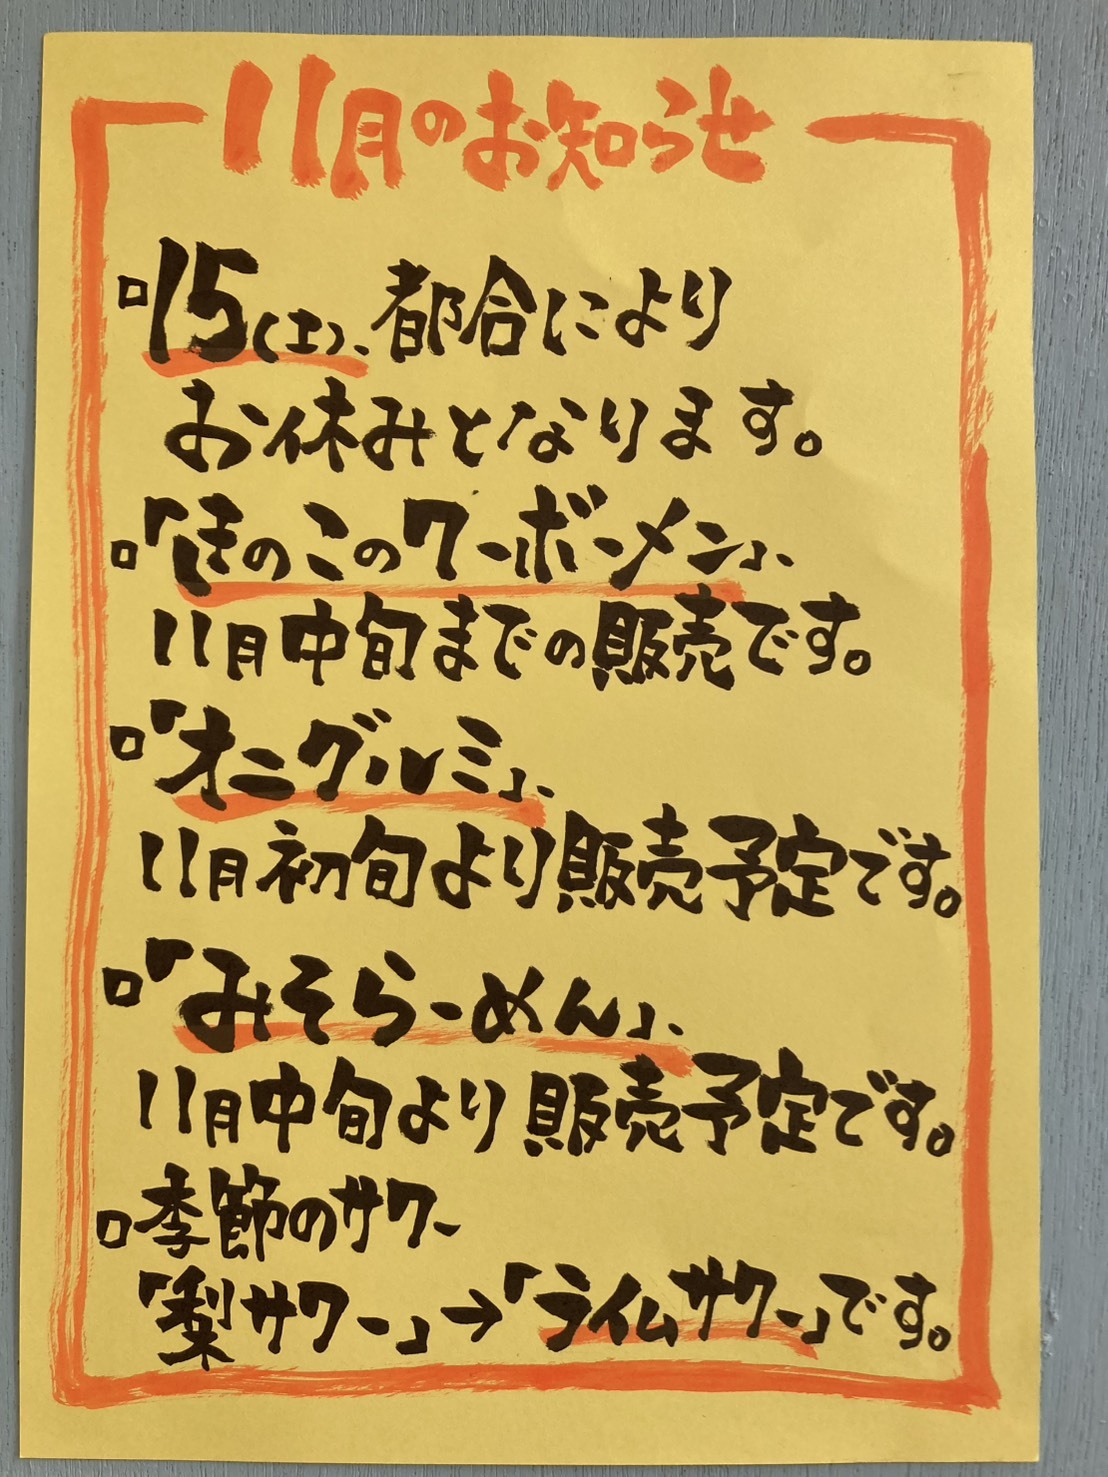 11月のお知らせ
▫15(土)、都合により
お休みとなります。
▫「きのこのワーボーメン」、
11月中旬までの販売です。
▫「オニグルミ」、
11月初旬より販売予定です。
▫「みそらーめん」、
11月中旬より販売予定です。
▫季節のサワー
「梨サワー」→「ライムサワー」です。